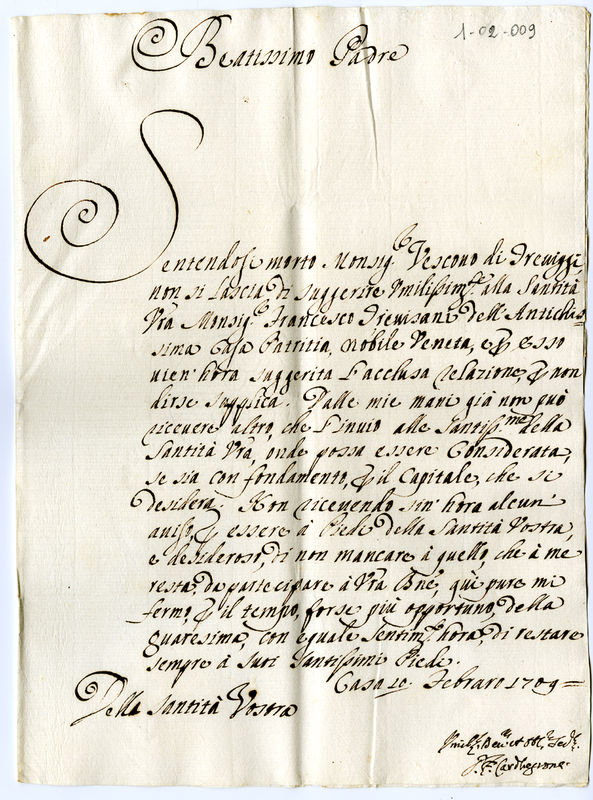 1-02-009
Beatissimo Padre
Sentendosi morto Monsig.r Vescouo di Treuiggi,
non si lascia, di suggerire Vmilissimte. alla Santità
Vrã Monsig.r Francesco Treuisani dell'Antichis=
sima Casa Patritia, nobile Veneta, e p esso
uien' hora suggerita l'acclusa relazione, p non
dirse supplica. Dalle mie mani già non può
riceuere altro, che l'inuio alle Santiss.me della
Santità Vrã, onde possa essere Considerata,
se sia con fondamento, p il Capitale, che si
desidera. Non riceuendo sin' hora alcun'
auiso, p essere à Piedi della Santità Vostra,
e desideroso, di non mancare à quello, che à me
resta, da partecipare à Vrã Bne, quì pure mi
fermo, p il tempo, forse più opportuno, della
Quaresima, con eguale sentimto. hora, di restare
sempre à suoi Santissimi Piedi.
Casa 10. Febraro 1709=
Della Santità Vostra
Vmiliss. Deu. et Obl.